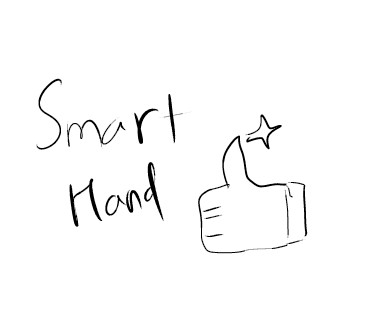 Smart
Hand